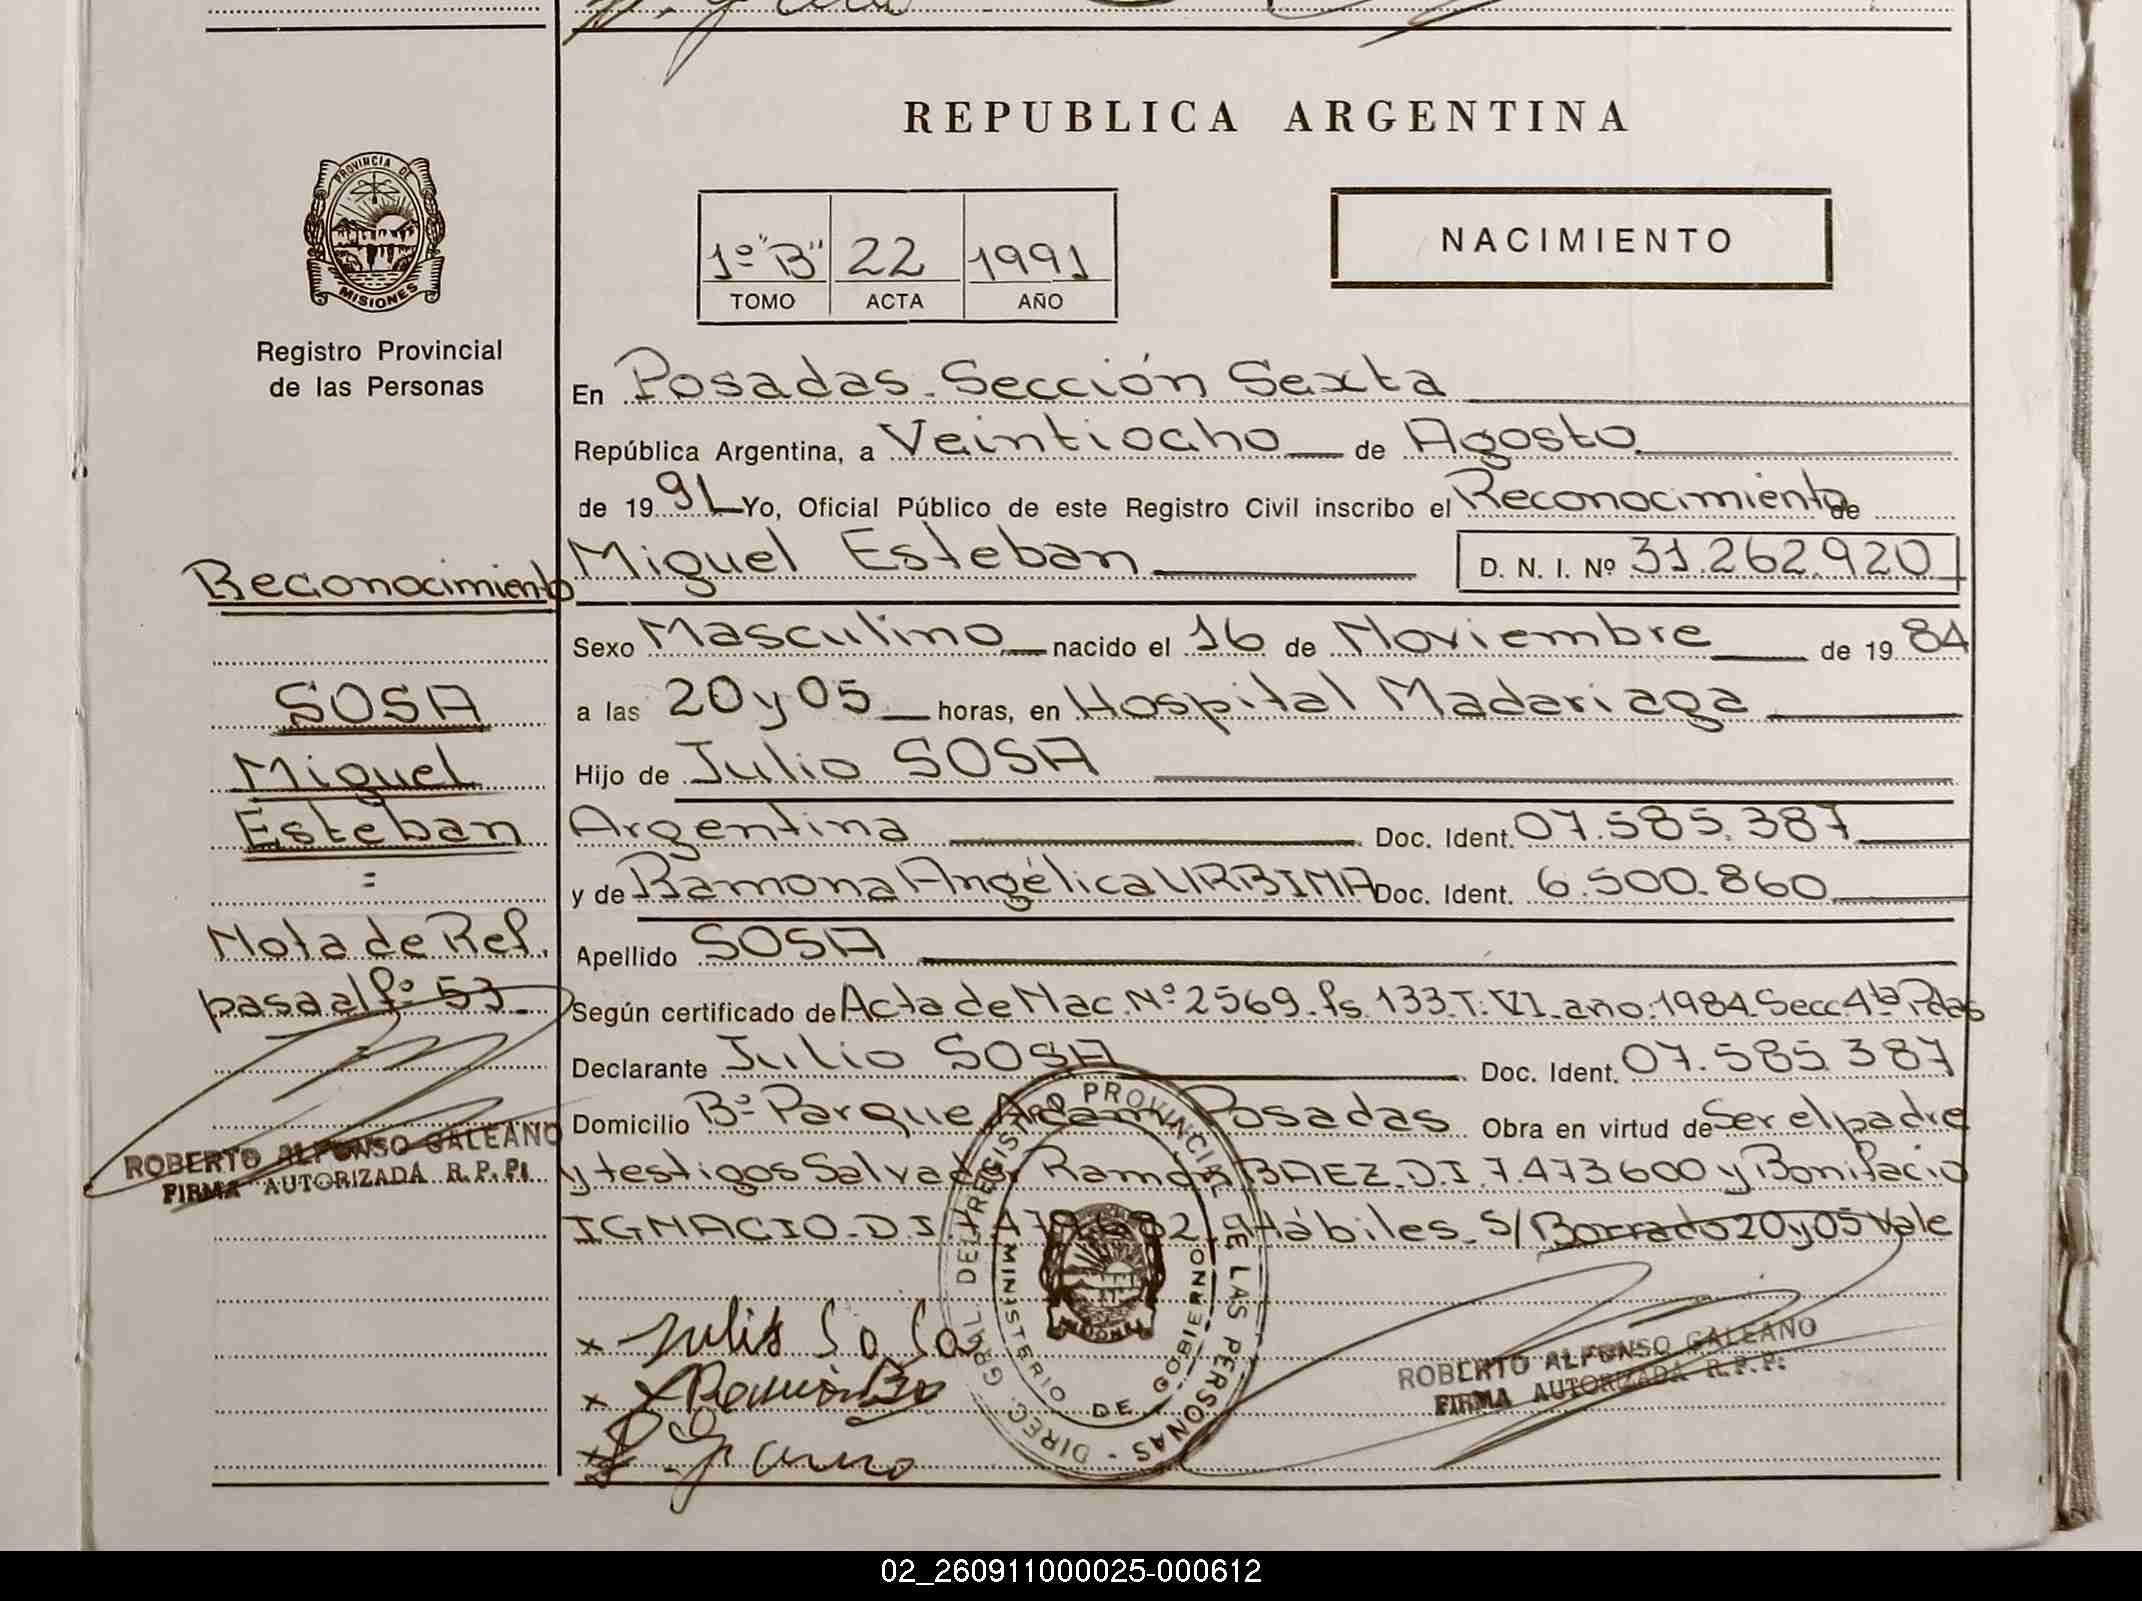 REPUBLICA ARGENTINA
PROVINCIA DE
MISIONES
Registro Provincial
de las Personas
1º "B" 22 1991
TOMO ACTA AÑO
NACIMIENTO
En Posadas - Sección Sexta
República Argentina, a Veintiocho de Agosto
de 1991 Yo, Oficial Público de este Registro Civil inscribo el Reconocimiento de
Miguel Esteban D. N. I. Nº 31.262.920
Sexo Masculino nacido el 16 de Noviembre de 1984
a las 20 y 05 horas, en Hospital Madariaga
Hijo de Julio SOSA
Argentina Doc. Ident. 07.585.387
y de Ramona Angélica URBINA Doc. Ident. 6.500.860
Apellido SOSA
Según certificado de Acta de Nac. Nº 2569 - fs. 133 T: VI - año: 1984 Secc. 4ta Pdas
Declarante Julio SOSA Doc. Ident. 07.585.387
Domicilio Bº Parque Adam Posadas Obra en virtud de Ser el padre
y testigos Salvador Ramón BAEZ. D.I. 7.473.600 y Bonifacio
IGNACIO - D.I. Hábiles - S/ Borrado 20 y 05 Vale
x Julio Sosa
x Ramón
x
ROBERTO ALFONSO GALEANO
FIRMA AUTORIZADA R.P.P.
DIREC. GRAL. DEL REGISTRO PROVINCIAL DE LAS PERSONAS
MINISTERIO DE GOBIERNO
MISIONES
Reconocimiento
SOSA
Miguel
Esteban
=
Nota de Ref.
pasa al fº 53
ROBERTO ALFONSO GALEANO
FIRMA AUTORIZADA R.P.P.
02_260911000025-000612